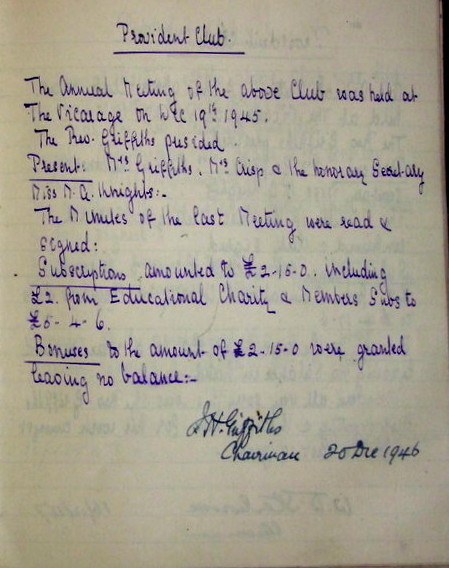 Provident Club.
The Annual Meeting of the above Club was held at
The Vicarage on Dec 19th 1945.
The Rev. Griffiths presided
Present: Mrs Griffiths, Mrs Crisp & the honorary Secretary
Miss M. A. Knights:-
The Minutes of the last Meeting were read &
signed:
Subscriptions amounted to £2-15-0. including
£2 from Educational Charity & Members Subs to
£5-4-6.
Bonuses to the amount of £2-15-0 were granted
leaving no balance:-
Griffiths
Chairman 20 Dec 1946